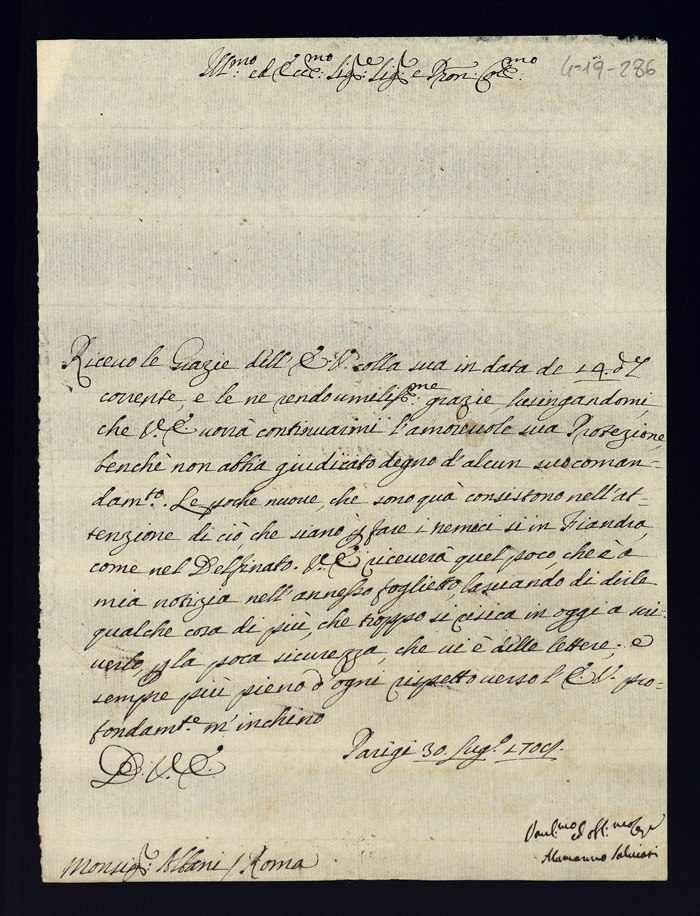 Ill:mo ed Ecc:mo Sig:re Sig:r e Pron Col:mo
4-19-286
Riceuo le Grazie dell' E. V. colla sua in data de 14. del
corrente, e le ne rendo umiliss:me grazie, lusingandomi,
che V. E. uorrà continuarmi l'amoreuole sua Protezione,
benchè non abbia giudicato degno d'alcun suo coman=
dam:to. Le poche nuoue, che sono quà consistono nell'at=
tenzione di ciò, che siano p fare i nemici sì in Fiandra,
come nel Delfinato. V. E. riceuerà quel poco, che è à
mia notizia nell'annesso foglietto, lasciando di dirle
qualche cosa di più, che troppo si risica in oggi a scri=
uerlo, p la poca sicurezza, che ui è delle lettere; e
sempre più pieno d'ogni rispetto uerso l'E. V. pro=
fondam:te m'inchino
Parigi 30. Lug:o 1709.
D. V. E.
ed obl:mo
Alamanno Saluiati
Monsig:r Albani / Roma